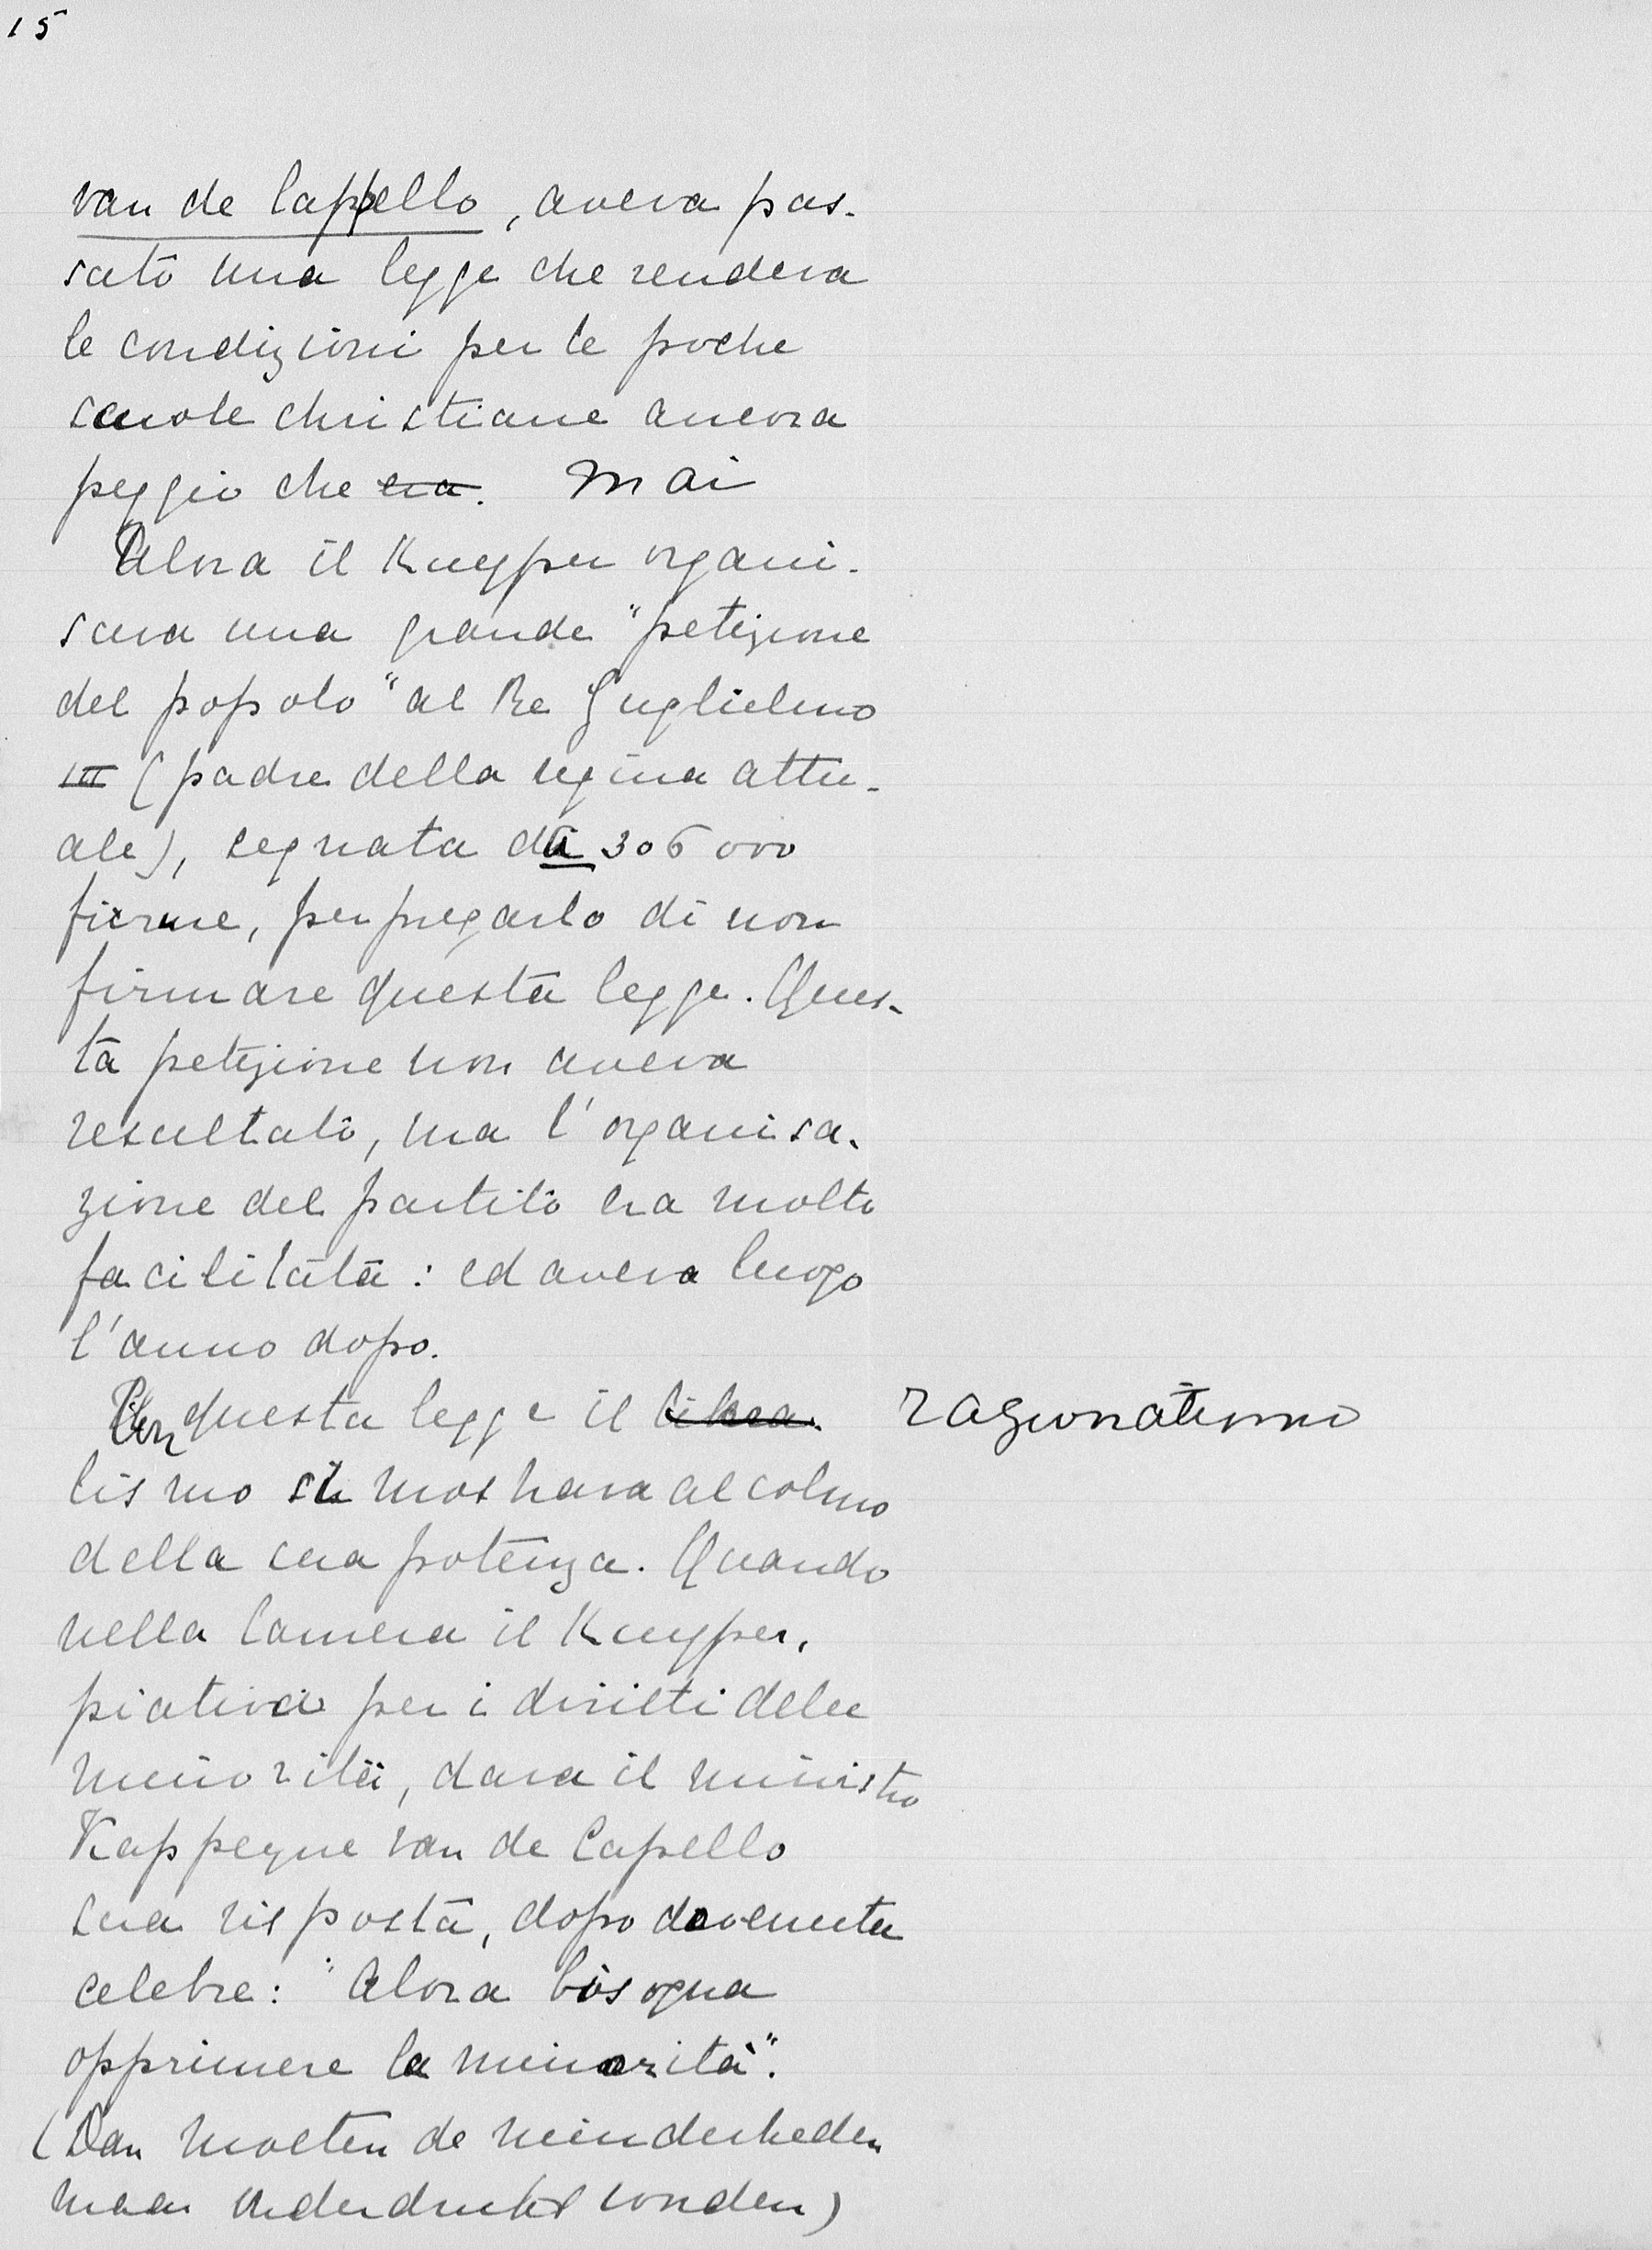 15
van de Cappello, aveva pas-
sato una legge che rendeva
le condizioni per le poche
scuole christiane ancora
peggio che era. mai
Alora il Kuyper organi-
sava una grande "petizione
del popolo" al Re Guglielmo
III (padre della regina attu-
ale), segnata da 306000
firme, per pregarlo di non
firmare questa legge. Ques-
ta petizione non aveva
resultato, ma l'organisa-
zione del partito era molto
facilitata: ed aveva luogo
l'anno dopo.
Con questa legge il libera- ragionatismo
lismo si mostrava al colmo
della sua potenza. Quando
nella Camera il Kuyper,
piativa per i diritti delle
minorità, dava il ministro
Kappeyne van de Capello
sua risposta, dopo davenuta
celebre: "Alora bisogna
opprimere la minorità".
(Dan moeten de minderheden
maar onderdrukt worden)